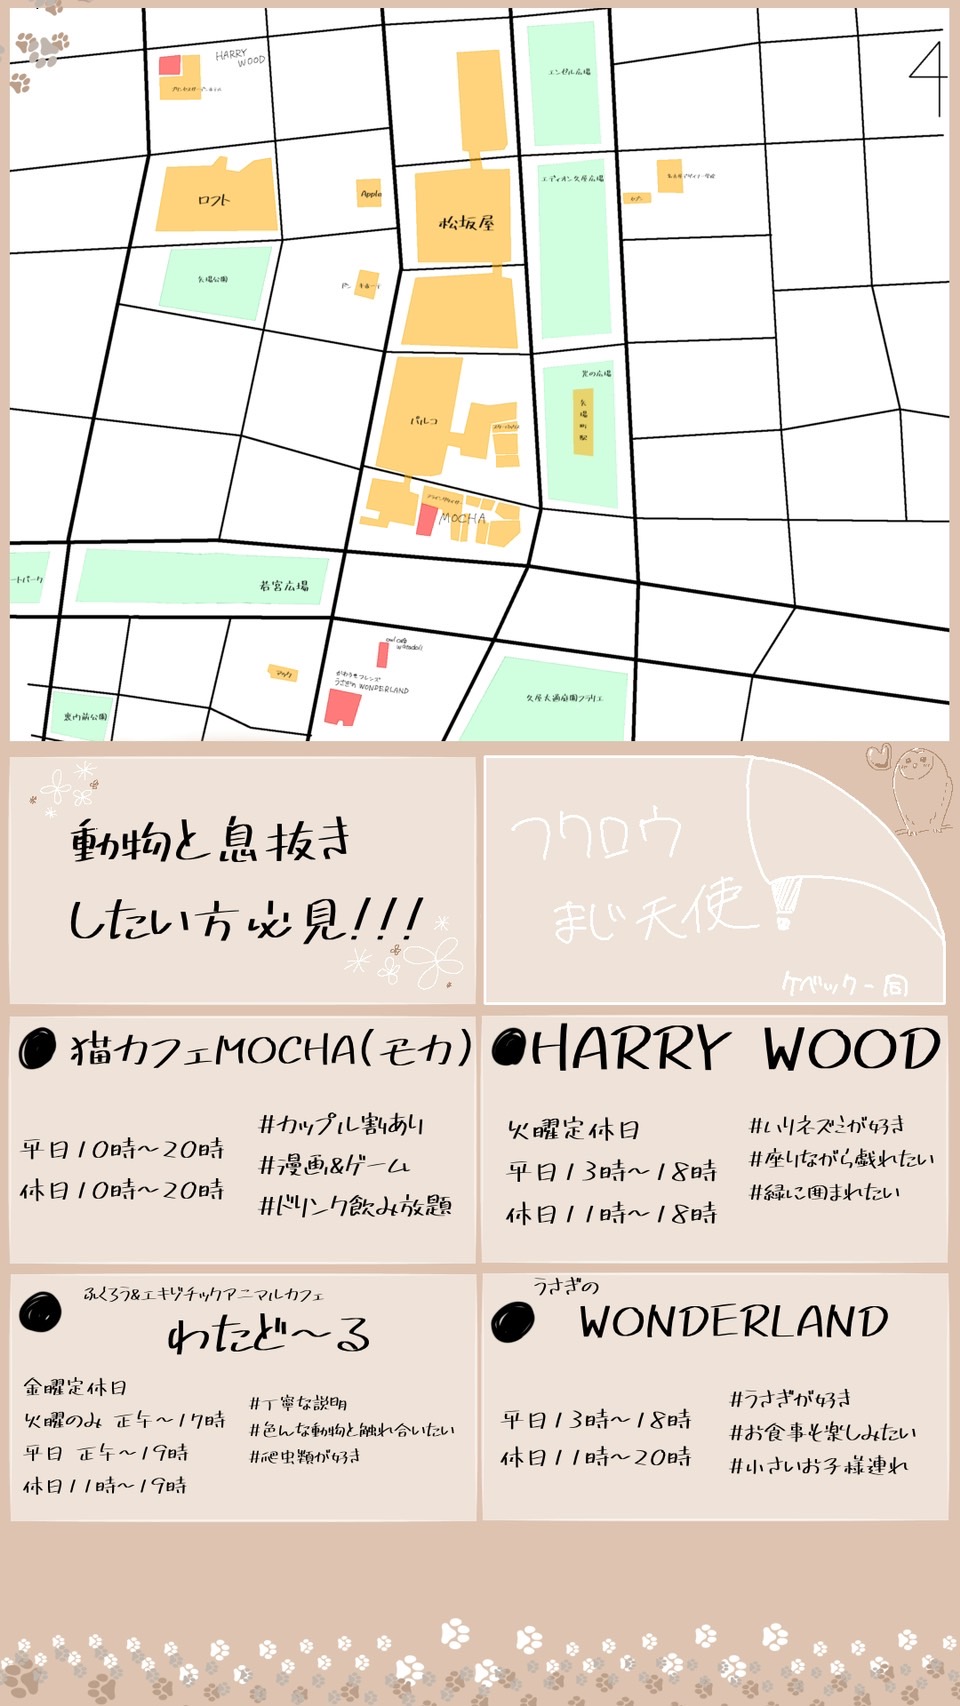 HARRY
WOOD
エンゼル広場
4
ロフト
Apple
松坂屋
エディオン久屋広場
矢場公園
光の広場
矢場町駅
パルコ
MOCHA
ートパーク
若宮広場
owl cafe
watadoll
マック
うさぎの WONDERLAND
裏門前公園
久屋大通庭園フラリエ
動物と息抜き
したい方必見!!!
フクロウ
まじ天使
ケベック一同
猫カフェMOCHA(モカ)
平日10時〜20時
休日10時〜20時
#カップル割あり
#漫画&ゲーム
#ドリンク飲み放題
HARRY WOOD
火曜定休日
平日13時〜18時
休日11時〜18時
#ハリネズミが好き
#座りながら戯れたい
#緑に囲まれたい
ふくろう&エキゾチックアニマルカフェ
わたど〜る
金曜定休日
火曜のみ 正午〜17時
平日 正午〜19時
休日11時〜19時
#丁寧な説明
#色んな動物と触れ合いたい
#爬虫類が好き
うさぎの
WONDERLAND
平日13時〜18時
休日11時〜20時
#うさぎが好き
#お食事も楽しみたい
#小さいお子様連れ